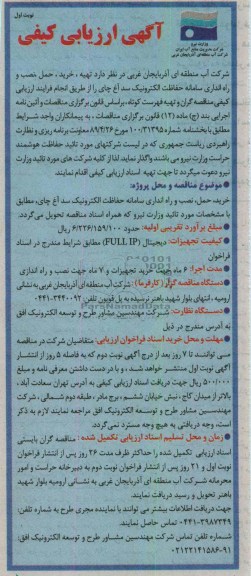 نوبت اول
وزارت نیرو
شرکت مدیریت منابع آب ایران
شرکت آب منطقه ای آذربایجان غربی
آگهی ارزیابی کیفی
شرکت آب منطقه ای آذربایجان غربی در نظر دارد تهیه ، خرید ، حمل ،نصب و
راه اندازی سامانه حفاظت الکترونیک سد آغ چای را از طریق انجام فرایند ارزیابی
کیفی مناقصه گران و تهیه فهرست کوتاه، براساس قانون برگزاری مناقصات و آئین نامه
اجرایی بند (ج) ماده (۱۲) قانون برگزاری مناقصات ، به پیمانکاران واجد شرایط
مطابق با بخشنامه شماره ۱۰۰/۳۱۳۹۵ مورخ ۸۹/۴/۲۶ معاونت برنامه ریزی و نظارت
راهبردی ریاست جمهوری که در لیست شرکتهای مورد تائید حفاظت هوشمند
حراست وزارت نیرو می باشند واگذار نماید. لذا از کلیه شرکت های مورد تائید وزارت
نیرو دعوت میگردد تا جهت تهیه اسناد ارزیابی کیفی اقدام نمایند.
موضوع مناقصه و محل پروژه:
خرید، حمل، نصب و راه اندازی سامانه حفاظت الکترونیک سد آغ چای، مطابق
با مشخصات مورد تائید وزارت نیرو که همراه اسناد مناقصه تحویل می گردد.
مبلغ برآورد تقریبی اولیه: حدود ۶/۲۳۶/۱۵۹/۱۰۰ ریال
کیفیت تجهیزات: دیجیتال (FULL IP) مطابق شرایط مندرج در اسناد
فراخوان
مدت اجرا: ۶ ماه جهت خرید تجهیزات و ۷ ماه جهت نصب و راه اندازی
دستگاه مناقصه گزار (کارفرما): شرکت آب منطقه ای آذربایجان غربی به نشانی
ارومیه ، انتهای بلوار شهید باهنر نرسیده به پل قویون تلفن: ۳۴۴۰۰۹۲-۰۴۴۱
دستگاه نظارت: شرکت مهندسین مشاور طرح و توسعه الکترونیک افق
به آدرس مندرج در ذیل
مهلت و محل خرید اسناد فراخوان ارزیابی: متقاضیان شرکت در مناقصه
می توانند تا ۷ روز بعد از درج آگهی نوبت دوم که به فاصله ۵ روز از انتشار
آگهی نوبت اول منتشر خواهد شد، و با در دست داشتن معرفی نامه و مبلغ
۵۰۰/۰۰۰ ریال جهت دریافت اسناد ارزیابی کیفی به آدرس تهران سعادت آباد ،
بالاتر از میدان کاج ، نبش خیابان ششم ، برج مادر ، طبقه دوم شمالی ، شرکت
مهندسین مشاور طرح و توسعه الکترونیک افق مراجعه نمایند لازم به ذکر
است، وجه دریافتی به هیچ وجه مسترد نمی گردد.
زمان و محل تسلیم اسناد ارزیابی تکمیل شده : مناقصه گران بایستی
اسناد ارزیابی تکمیل شده را حداکثر ظرف مدت ۲۶ روز پس از انتشار فراخوان
نوبت اول و ۲۱ روز پس از انتشار فراخوان نوبت دوم به دبیرخانه حراست و امور
محرمانه شرکت آب منطقه ای آذربایجان غربی به نشانی ارومیه بلوار شهید
باهنر تحویل و رسید دریافت نمایند.
جهت دریافت اطلاعات بیشتر می توانند با نماینده مجری طرح به شماره تلفن:
۰۴۴۱-۳۹۸۷۳۴۹ تماس حاصل نمایند.
شماره تلفن تماس شرکت مهندسین مشاور طرح و توسعه الکترونیک افق:
۰۲۱۲۲۱۴۱۵۸۶-۹۱